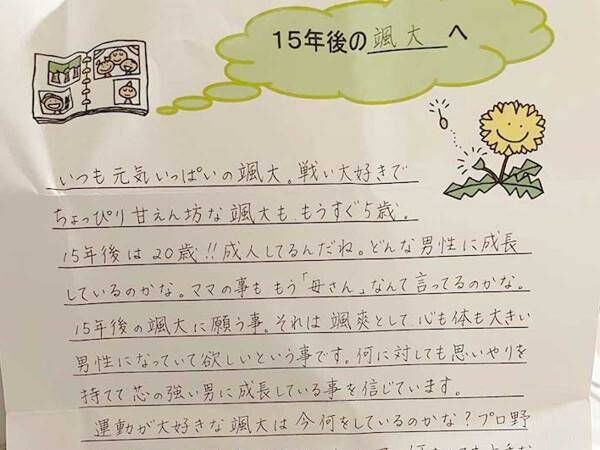 15年後の颯大へ
いつも元気いっぱいの颯大。戦い大好きで
ちょっぴり甘えん坊な颯大も、もうすぐ5歳。
15年後は20歳!!成人してるんだね。どんな男性に成長
しているのかな。ママの事ももう「母さん」なんて言ってるのかな。
15年後の颯大に願う事。それは颯爽として、心も体も大きい
男性になっていて欲しいという事です。何に対しても思いやりを
持てて芯の強い男に成長している事を信じています。
運動が大好きな颯大は今何をしているのかな?プロ野